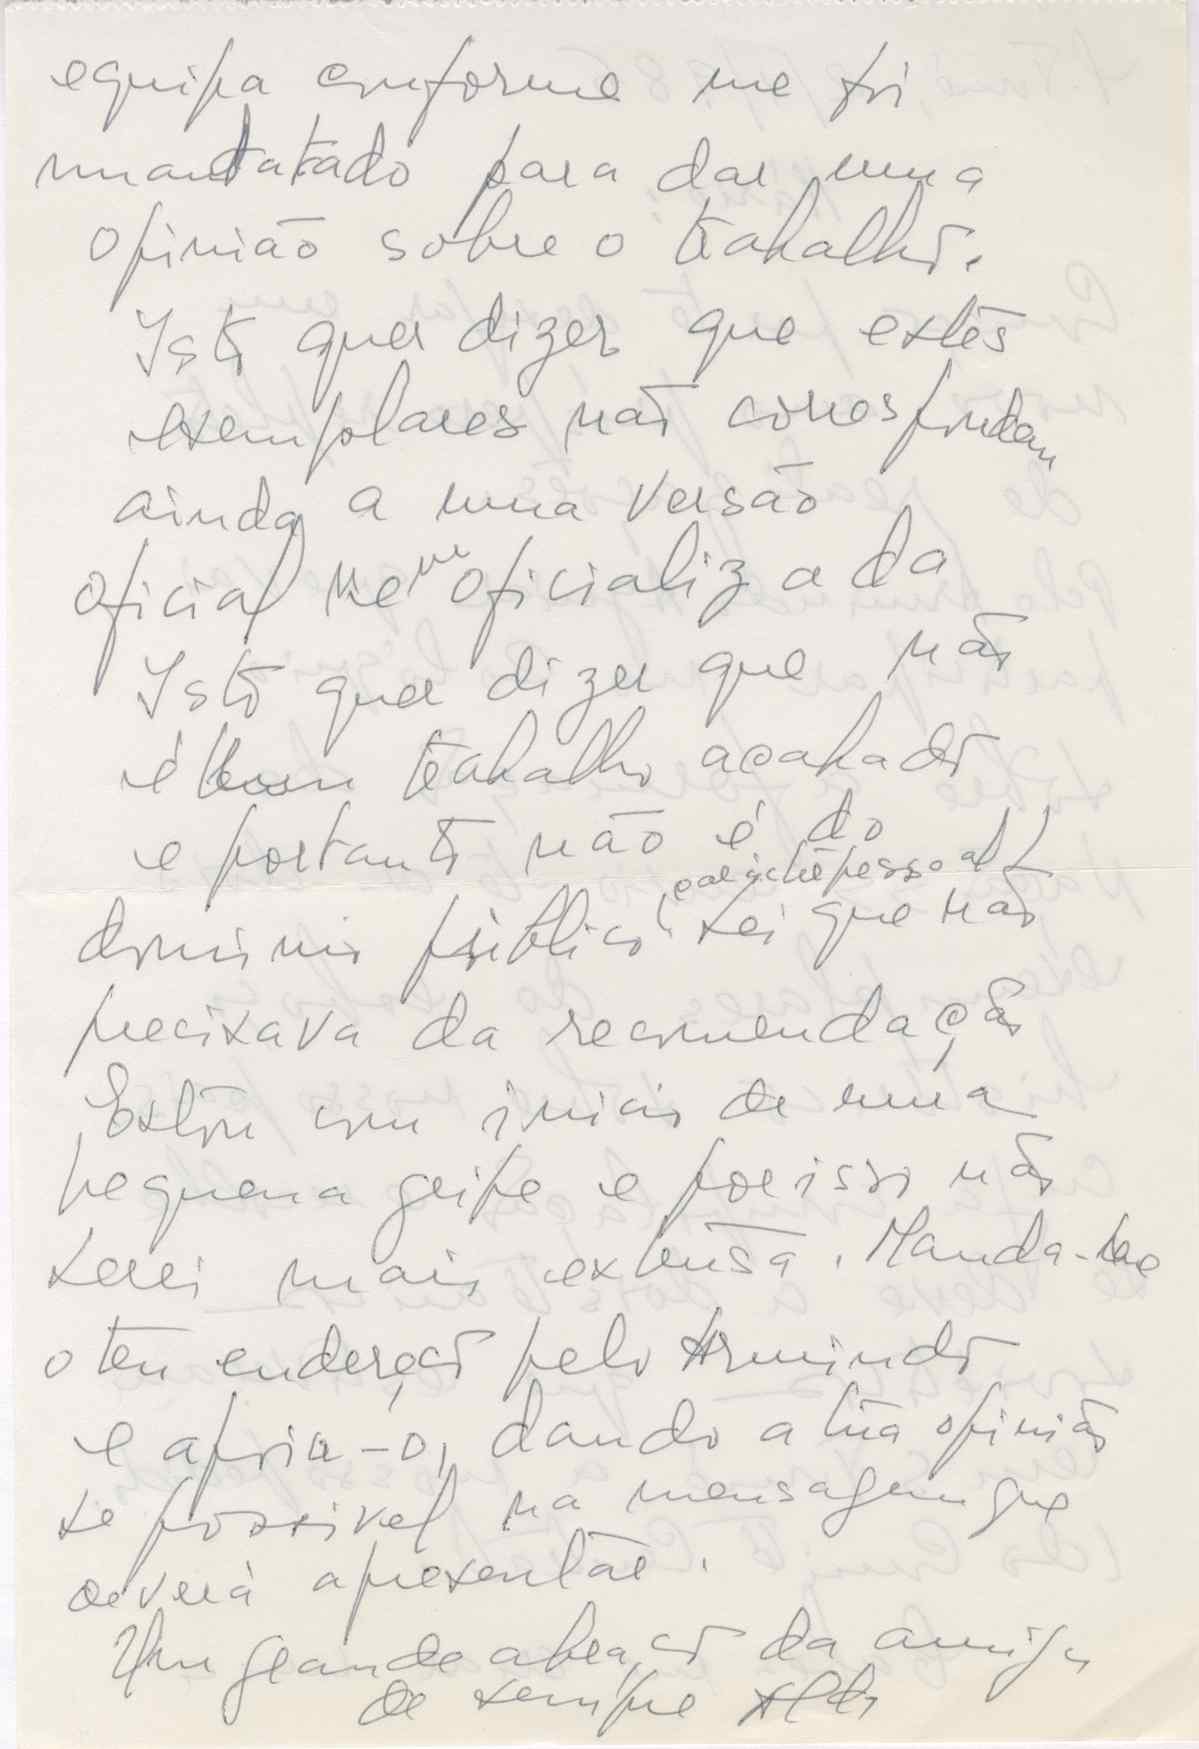 equipa conforme me foi
mandatado para dar uma
opinião sobre o trabalho.
Isto quer dizer que estes
exemplares não correspondem
ainda a uma versão
oficial nem oficializada
Isto quer dizer que não
é um trabalho acabado
e portanto não é do
carácter pessoal!
domínio público. Sei que não
precisava da recomendação
Estou com inicio de uma
pequena gripe e porisso não
serei mais extensa. Manda-me
o teu endereço pelo Armindo
e apoia-o, dando a tua opinião
se possivel na mensagem que
deverá apresentar.
Um grande abraço da amiga
de sempre Alda